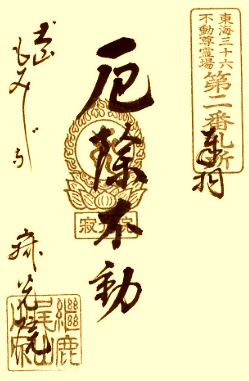 東海三十六
不動尊霊場
第二番札所
奉拝
厄除不動
寂光院
もみじ
寂光院
繼鹿
尾